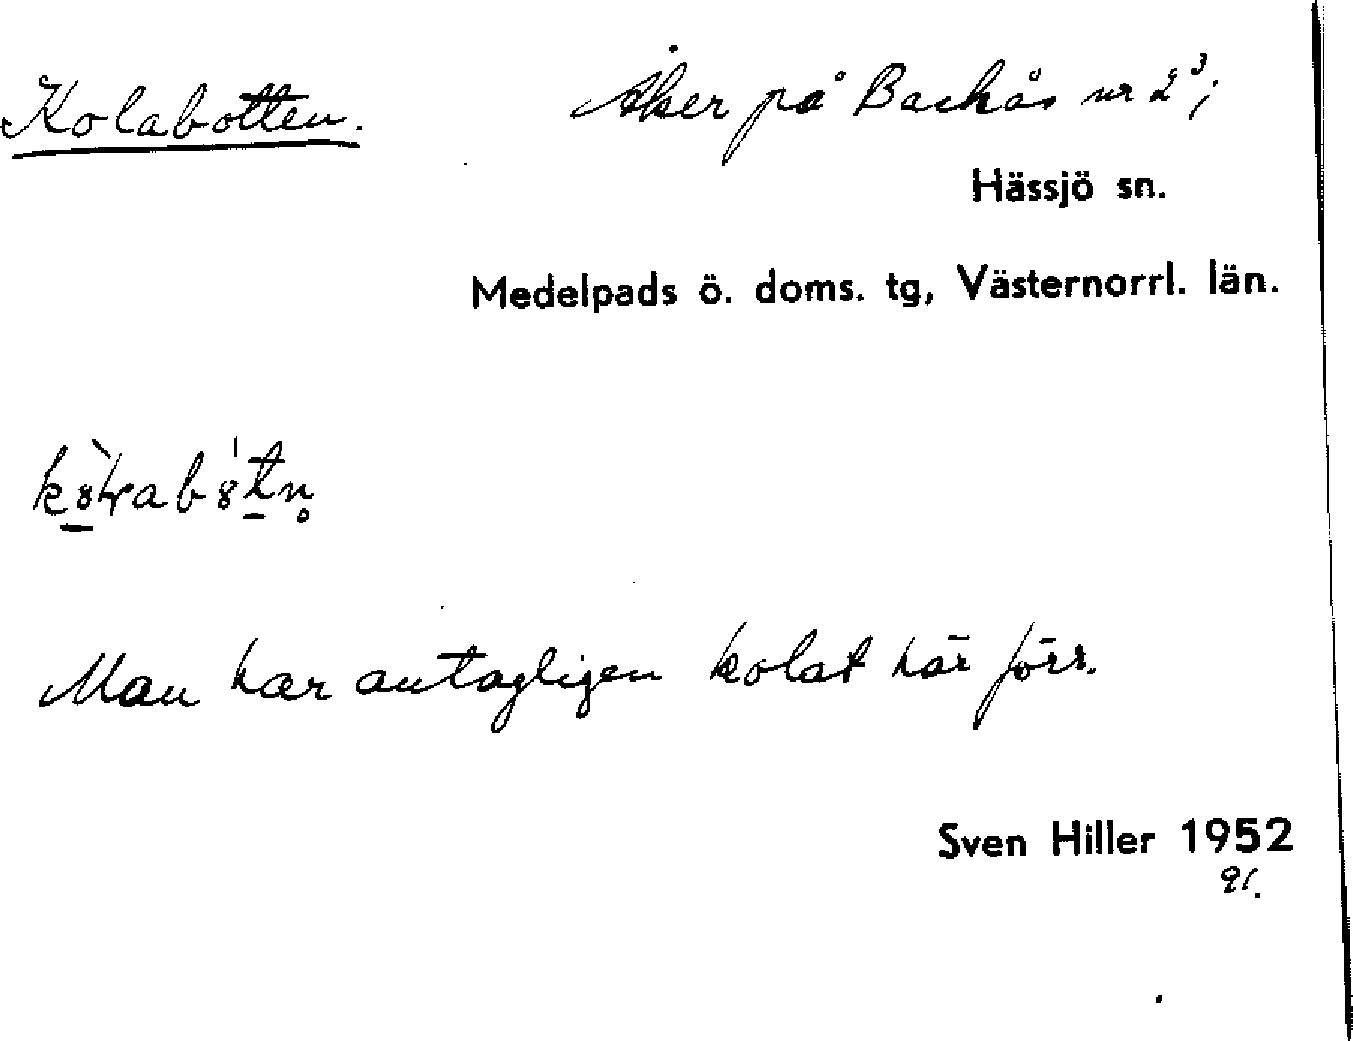 Kolabotten. Åker på Backås nr 2³;
Hässjö sn.
Medelpads ö. doms. tg, Västernorrl. län.
Man har antagligen kolat här förr.
Sven Hiller 1952
91.